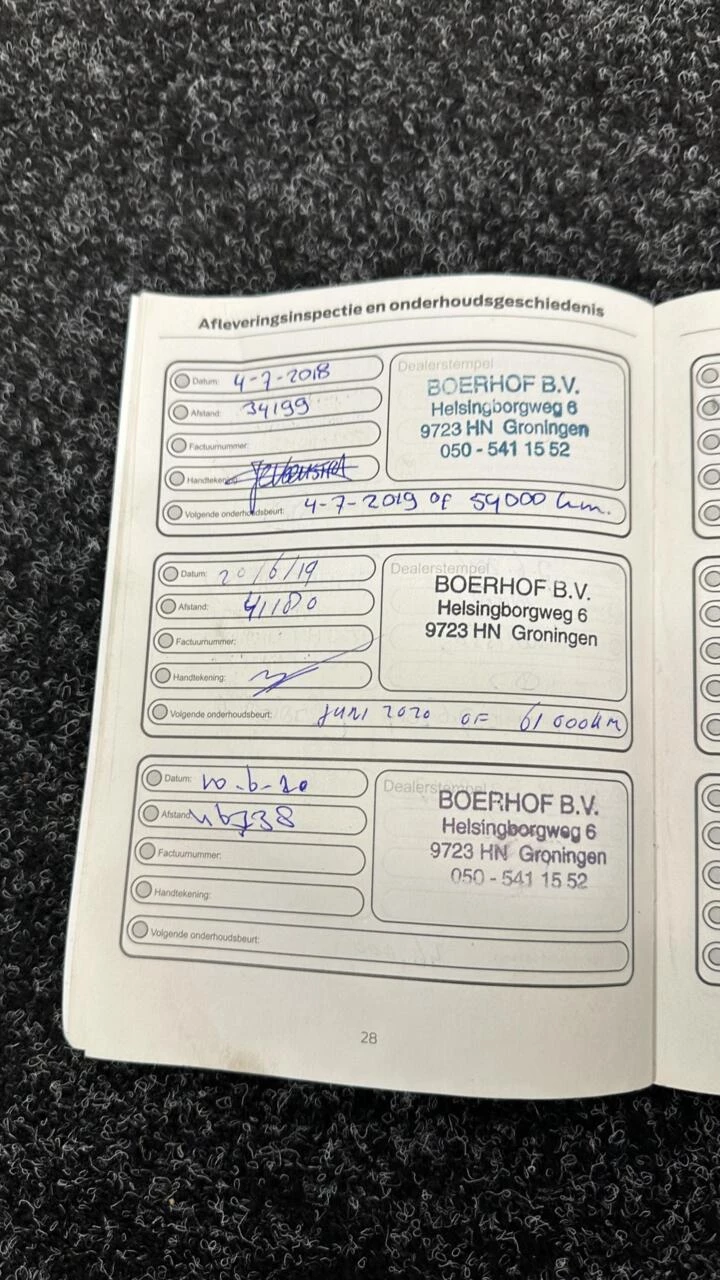 Afleveringsinspectie en onderhoudsgeschiedenis
Datum: 4-7-2018
Afstand: 34199
Factuurnummer:
Handtekening:
Volgende onderhoudsbeurt: 4-7-2019 of 54000 km.
Dealerstempel
BOERHOF B.V.
Helsingborgweg 6
9723 HN Groningen
050 - 541 15 52
Datum: 20/6/19
Afstand: 41180
Factuurnummer:
Handtekening:
Volgende onderhoudsbeurt: JUNI 2020 OF 61000KM
Dealerstempel
BOERHOF B.V.
Helsingborgweg 6
9723 HN Groningen
Datum:
Afstand:
Factuurnummer:
Handtekening:
Volgende onderhoudsbeurt:
Dealerstempel
BOERHOF B.V.
Helsingborgweg 6
9723 HN Groningen
050 - 541 15 52
28